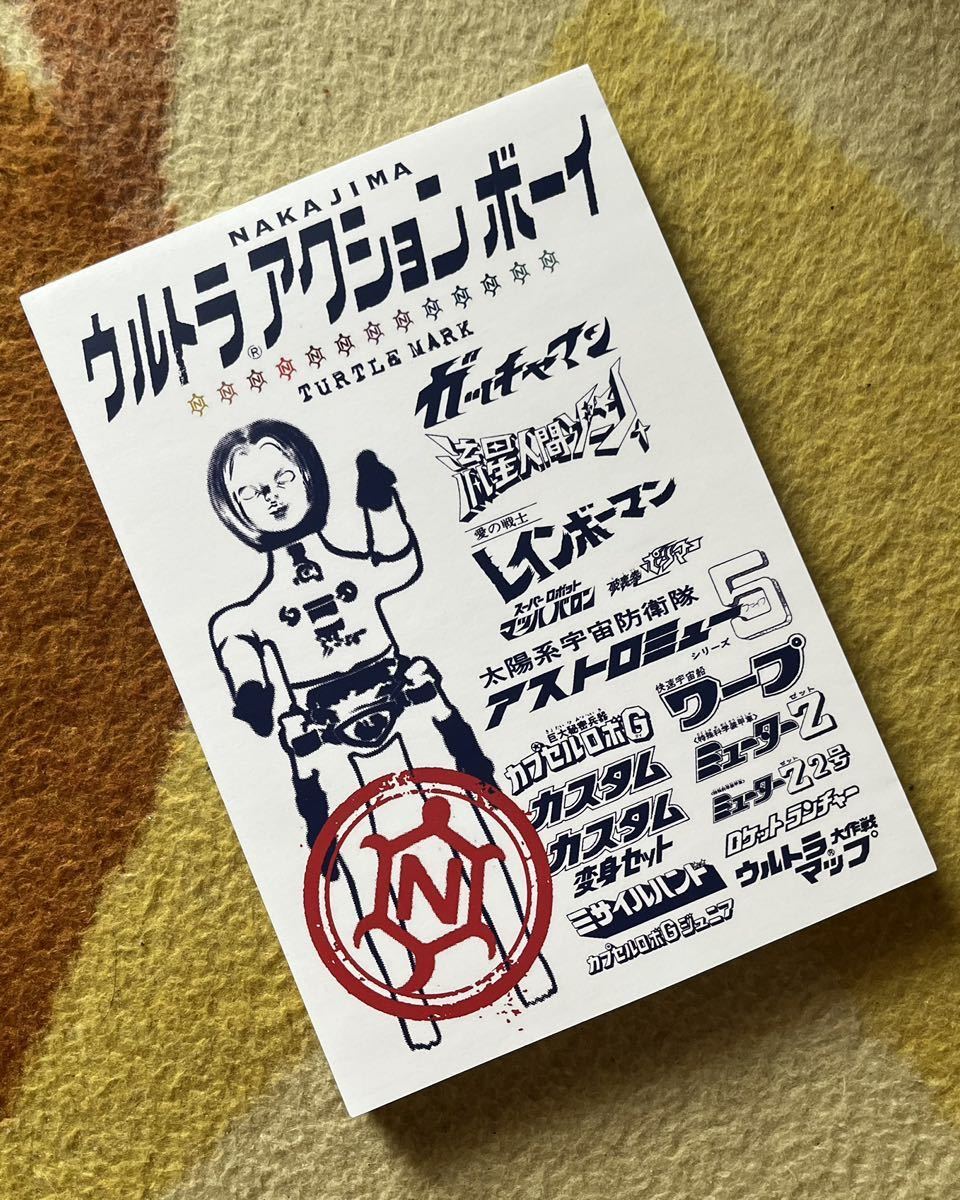 NAKAJIMA
ウルトラ アクション ボーイ
®
TURTLE MARK
ガッチャマン
流星人間ゾーン
愛の戦士
レインボーマン
スーパーロボット
マッハバロン
破裏拳ポリマー
太陽系宇宙防衛隊
アストロミュー5
ファイブ
シリーズ
快速宇宙船
ワープ
巨大秘密兵器
カプセルロボG
ゼット
ミューターZ
カスタム
ゼット
ミューターZ2号
カスタム
変身セット
ロケットランチャー
ミサイルハンド
ウルトラ®大作戦
マップ
カプセルロボGジュニア
N